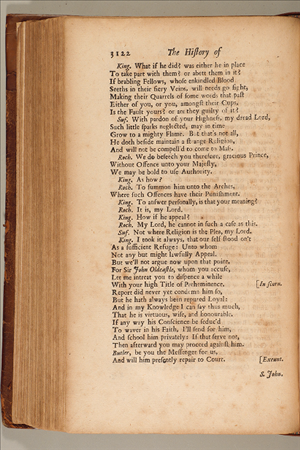 3122 The History of
King. What if he did? was either he in place
To take part with them? or abett them in it?
If brabling Fellows, whose enkindled Blood
Seeths in their fiery Veins, will needs go fight,
Making their Quarrels of some words that past
Either of you, or you, amongst their Cups,
Is the Fault yours? or are they guilty of it?
Suf. With pardon of your Highness, my dread Lord,
Such little sparks neglected, may in time
Grow to a mighty Flame. But that's not all,
He doth beside maintain a strange Religion,
And will not be compell'd to come to Mass.
Roch. We do beseech you therefore, gracious Prince,
Without Offence unto your Majesty,
We may be bold to use Authority.
King. As how?
Roch. To summon him unto the Arches,
Where such Offences have their Punishment.
King. To answer personally, is that your meaning?
Roch. It is, my Lord.
King. How if he appeal?
Roch. My Lord, he cannot in such a case as this.
Suf. Not where Religion is the Plea, my Lord.
King. I took it always, that our self stood on't
As a sufficient Refuge: Unto whom
Not any but might lawfully Appeal.
But we'll not argue now upon that point.
For Sir John Oldcastle, whom you accuse,
Let me intreat you to dispence a while
With your high Title of Preheminence. [In scorn.
Report did never yet condemn him so,
But he hath always been reputed Loyal:
And in my Knowledge I can say thus much,
That he is virtuous, wise, and honourable.
If any way his Conscience be seduc'd
To waver in his Faith, I'll send for him,
And school him privately: If that serve not,
Then afterward you may proceed against him.
Butler, be you the Messenger for us,
And will him presently repair to Court. [Exeunt.
S. John.